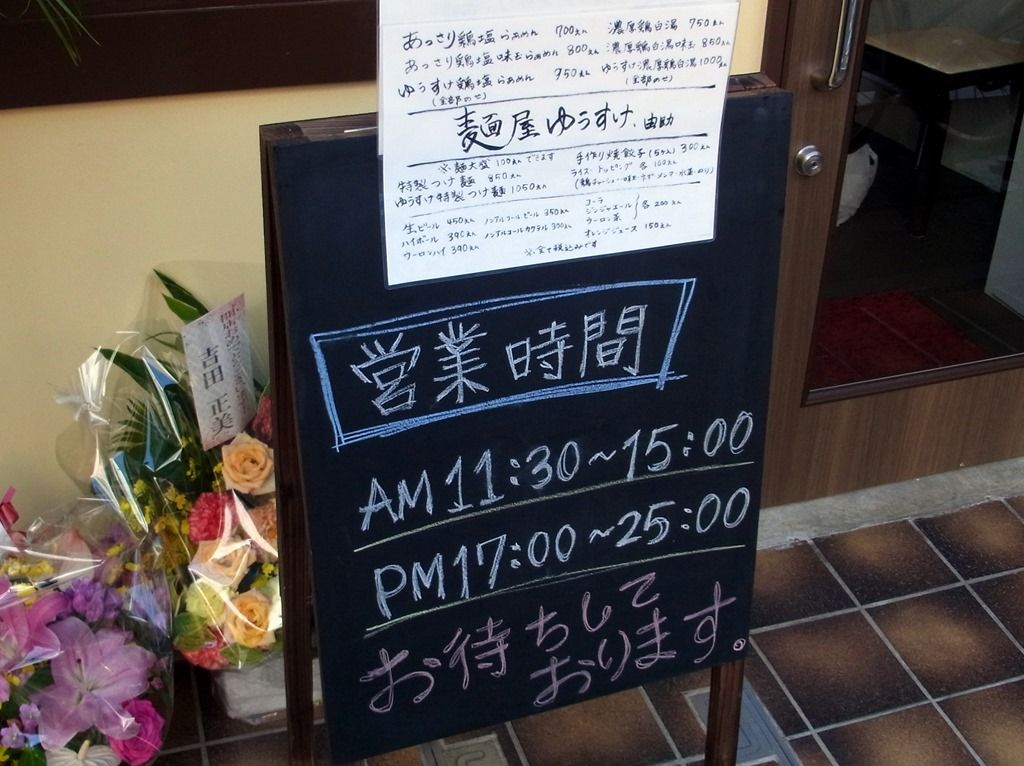 あっさり鶏塩らぁめん 700えん
あっさり鶏塩味玉らぁめん 800えん
ゆうすけ鶏塩らぁめん 950えん
(全部のせ)
濃厚鶏白湯 750えん
濃厚鶏白湯味玉 850えん
ゆうすけ濃厚鶏白湯1000えん
(全部のせ)
麺屋ゆうすけ. 由助
※麺大盛 100えんでできます
特製つけ麺 850えん
ゆうすけ特製つけ麺 1050えん
手作り焼餃子(5ヶ入) 300えん
ライス・トッピング 各100えん
生ビール 450えん
ハイボール 390えん
ウーロンハイ 390えん
ノンアルコールビール 350えん
ノンアルコールカクテル 300えん
コーラ
ジンジャエール
ウーロン茶
各200えん
オレンジジュース 150えん
※全て税込みです
営業時間
AM11:30~15:00
PM17:00~25:00
お待ちして
おります。
吉田 正美